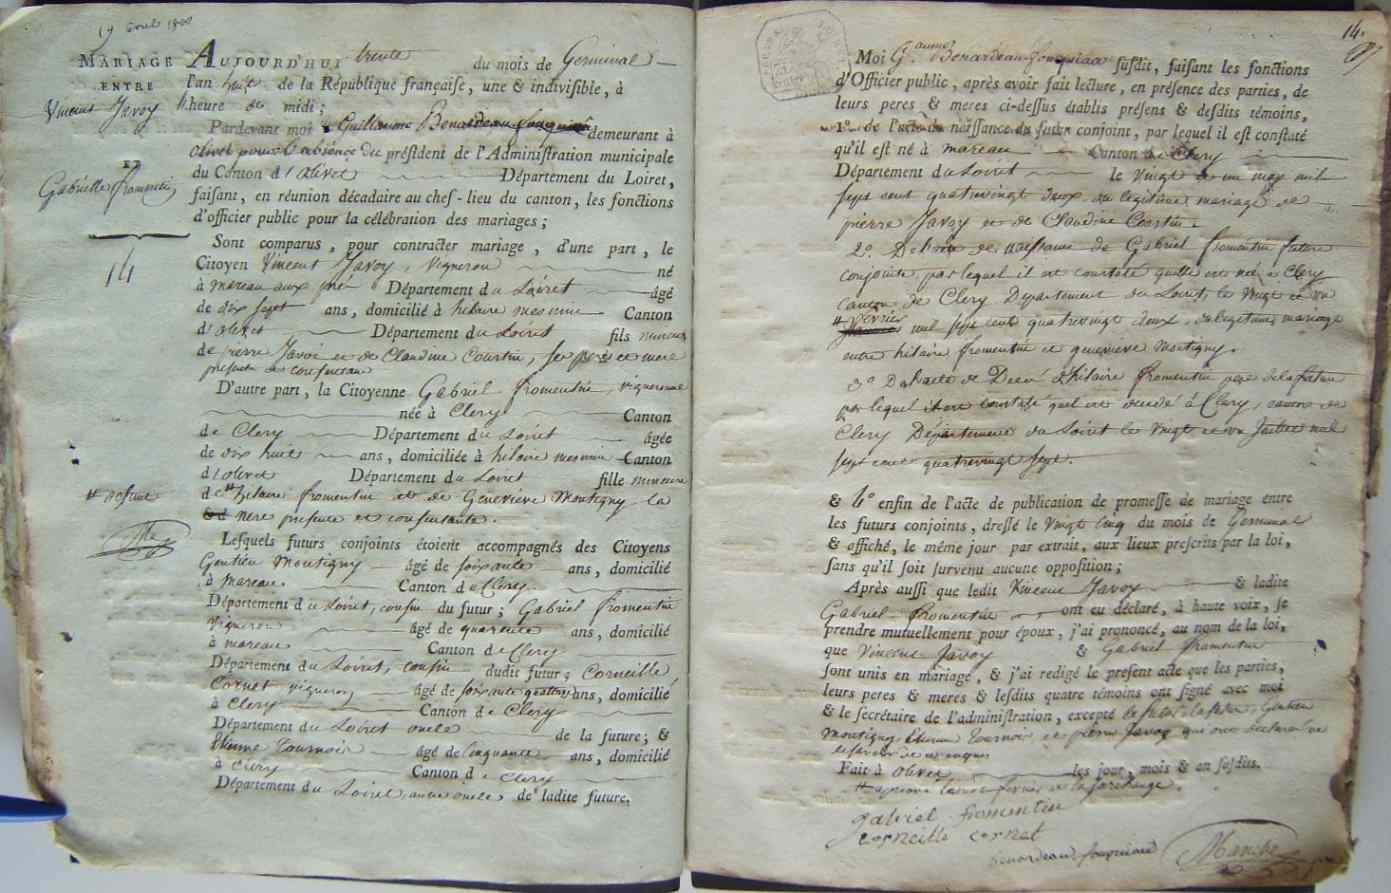 19 avril 1800
MARIAGE
ENTRE
Vincent Javoy
ET
Gabrielle fromentin
14
AUJOURD'HUI trente du mois de Germinal
l'an huit de la République françaiſe, une & indiviſible, à
heure de midi;
Pardevant moi Guillaume Benardeau demeurant à
olivet pour l'absence du préſident de l'Adminiſtration municipale
du Canton d'olivet Département du Loiret,
faiſant, en réunion décadaire au chef-lieu du canton, les fonctions
d'officier public pour la célébration des mariages;
Sont comparus, pour contracter mariage, d'une part, le
Citoyen Vincent Javoy, vigneron né
à mareau aux prés Département du Loiret âgé
de dix sept ans, domicilié à hilaire mesmin Canton
d'olivet Département du Loiret fils mineur
de pierre Javoi et de Claudine Courtin, ses pere et mere
présents et consentans
D'autre part, la Citoyenne Gabriel fromentin, vigneronne
née à Clery Canton
de Clery Département du Loiret âgée
de dix huit ans, domiciliée à hilaire mesmin Canton
d'olivet Département du Loiret fille mineure
# defunt
de # hilaire fromentin et de Genevieve Montigny la
mere presente et consentante.
Leſquels futurs conjoints étoient accompagnés des Citoyens
Gentien Montigny âgé de soixante ans, domicilié
à mareau Canton de Clery
Département du Loiret, cousin du futur; Gabriel fromentin
vigneron âgé de quarente ans, domicilié
à mareau Canton de Clery
Département du Loiret, cousin dudit futur; Corneille
Cornet, vigneron âgé de soixante quatre ans, domicilié
à Clery Canton de Clery
Département du Loiret oncle de la future; &
Etienne Tournois âgé de Cinquante ans, domicilié
à Clery Canton de Clery
Département du Loiret, aussi oncle de ladite future.
14.
Moi G.aume Benardeau fouqueau ſuſdit, faiſant les fonctions
d'Officier public, après avoir fait lecture, en préſence des parties, de
leurs peres & meres ci-deſſus établis préſens & deſdits témoins,
1°. de l'acte de naiſſance du futur conjoint, par lequel il eſt conſtaté
qu'il eſt né à mareau Canton de Clery
Département du Loiret le vingt et un may mil
sept cent quatrevingt deux, du legitime mariage de
pierre Javoy et de Claudine Courtin.
2°. De l'acte de naissance de Gabriel fromentin future
conjointe, par lequel il est constaté quelle est née à Clery
canton de Clery Departement du Loiret, le vingt et un
# fevrier mil sept cent quatrevingt deux, du legitime mariage
entre hilaire fromentin et genevieve Montigny.
3° De l'acte de Decè d'hilaire fromentin pere de la future
par lequel il est constaté quil est decedé à Clery, canton de
Clery Département du Loiret le vingt et un Juillet mil
sept cent quatrevingt sept.
& 4° enfin de l'acte de publication de promeſſe de mariage entre
les futurs conjoints, dreſſé le vingt cinq du mois de Germinal
& affiché, le même jour par extrait, aux lieux preſcrits par la loi,
ſans qu'il ſoit ſurvenu aucune oppoſition;
Après auſſi que ledit Vincent Javoy & ladite
Gabriel fromentin ont eu déclaré, à haute voix, ſe
prendre mutuellement pour époux, j'ai prononcé, au nom de la loi,
que Vincent Javoy & Gabriel fromentin
ſont unis en mariage, & j'ai redigé le preſent acte que les parties,
leurs peres & meres & leſdits quatre témoins ont ſigné avec moi
& le ſecrétaire de l'adminiſtration, excepté le futur, la future, Gentien
Montigny, Etienne Tournois et pierre Javoy qui ont declaré ne
le savoir de ce enquis
Fait à olivet les jour, mois & an ſuſdits.
# approuvé le mot fevrier et la surcharge.
gabriel fromentin
corneille cornet
benardeau fouqueau